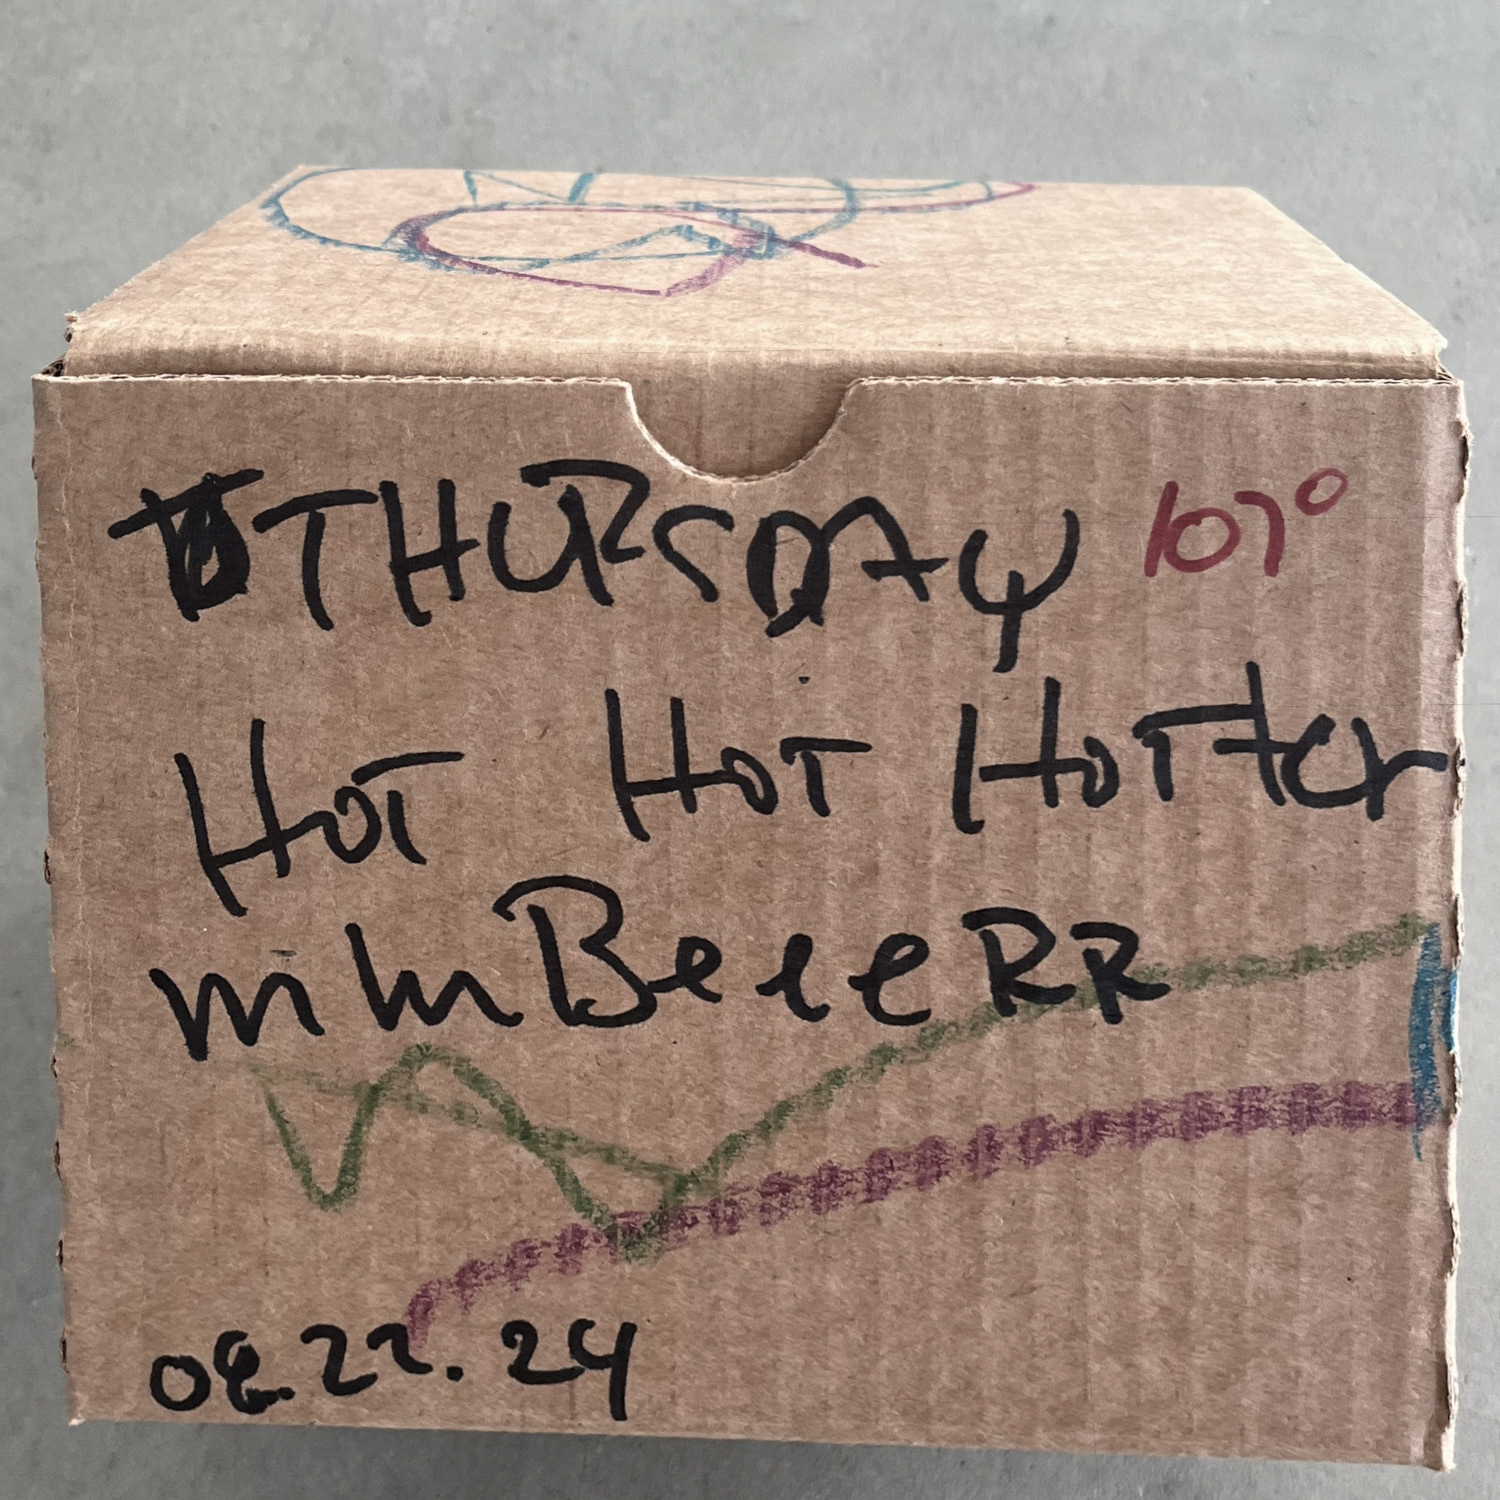 THURSDAY 107°
HOT HOT HOTter
BeeeRR
08.22.24